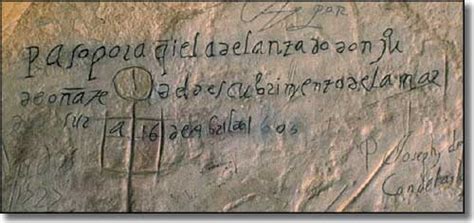 paso por aq̃i el adelantado don ju
de oñate del descubrimiento de la mar
del sur a 16 de abril del 605
P Joseph de
Candelari